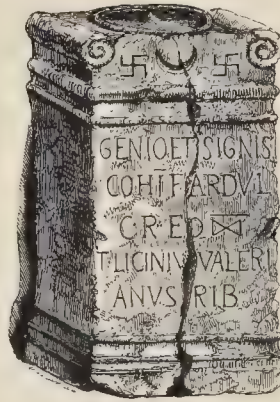 GENIO.ET SIGNIS
COH Ī F VARDVL
C.R.EQ ∞
T LICINIVS VALERI
ANVS TRIB.